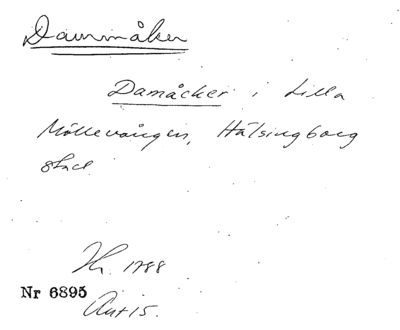 Dammåker
Damåcker i Lilla
Möllevången, Hälsingborg
stad
Hr. 1788
Nr 6895
Art 15.